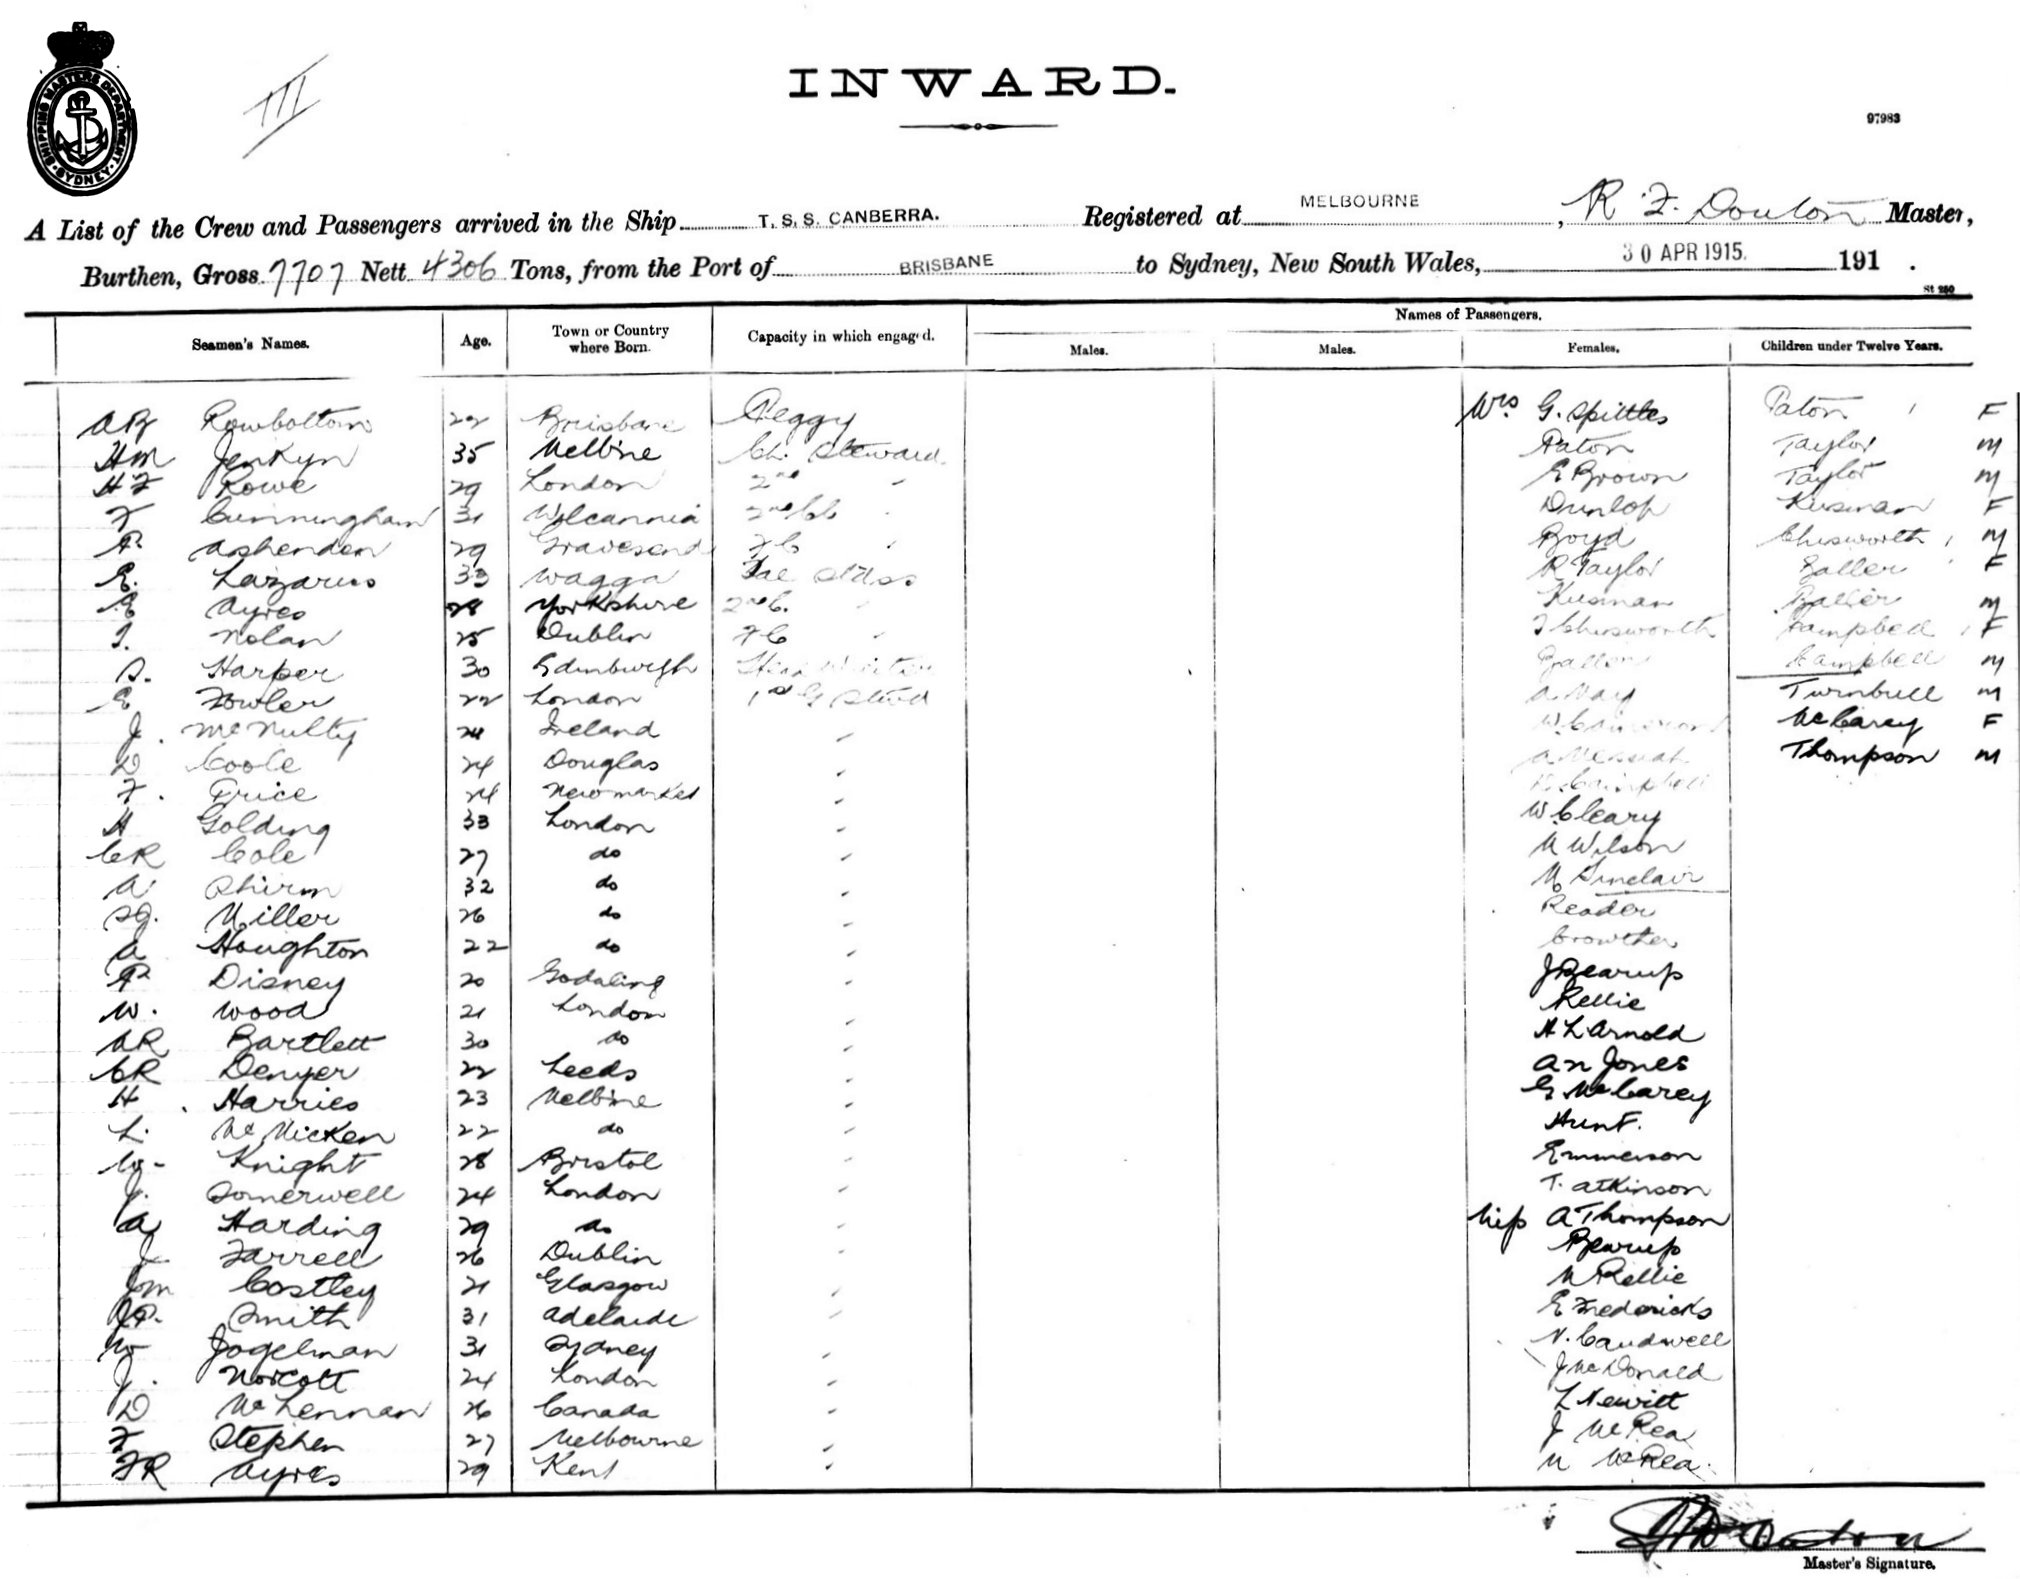 SHIPPING MASTERS DEPARTMENT
SYDNEY
III
INWARD.
97983
A List of the Crew and Passengers arrived in the Ship T. S. S. CANBERRA. Registered at MELBOURNE, R F. Douton Master,
Burthen, Gross 7707 Nett 4306 Tons, from the Port of BRISBANE to Sydney, New South Wales, 30 APR 1915. 191 .
St 250
Names of Passengers.
Seamen's Names. Age. Town or Country where Born. Capacity in which engaged. Males. Males. Females. Children under Twelve Years.
AB Rowbottom 22 Brisbane Peggy Mrs G. Spittles Paton F
HM Jenkyn 35 Melb'ne Ch. Steward Paton Taylor M
HF Rowe 29 London 2nd " E Brown Taylor M
F Cunningham 31 Wilcannia 2nd Cl " Dunlop Kusman F
P. Ashenden 29 Gravesend " Boyd Chisworth M
E. Lazarus 33 Wagga R Taylor Zaller F
E Ayres 28 Yorkshire 2nd C. " Kusman M
T. Nolan 25 Dublin " T Chisworth Campbell F
S. Harper 30 Edinburgh Head Waiter Campbell M
E Fowler 22 London 1st G Stwd A May Turnbull M
J. McNulty 24 Ireland " W. Cameron McCarey F
D Coole 24 Douglas " A Thompson M
F. Price 24 Newmarket " Campbell
H Golding 33 London " W. Cleary
CR Cole 27 do " M Wilson
A Shirm 32 do " M Sinclair
SJ. Miller 26 do " Reader
A Houghton 22 do " Crowther
P Disney 20 Godaling " J Bearup
W. Wood 21 London " Rellie
AR Bartlett 30 do " H L Arnold
CR Denyer 22 Leeds " A N Jones
H. Harries 23 Melb'ne " G McCarey
L. McMicken 22 do " Hunt.
W. Knight 28 Bristol " Emmerson
J. Somerwell 24 London " T. Atkinson
A Harding 29 do " Miss A Thompson
J Farrell 26 Dublin " Bearup
JM Costley 21 Glasgow " M Rellie
JP. Smith 31 Adelaide " E Fredericks
W Jogelman 31 Sydney " V. Caudwell
J. Norcott 24 London " J McDonald
D McLennan 26 Canada " L Hewitt
F Stephen 27 Melbourne " J McRea
FR Ayres 29 Kent " M McRea.
Master's Signature.